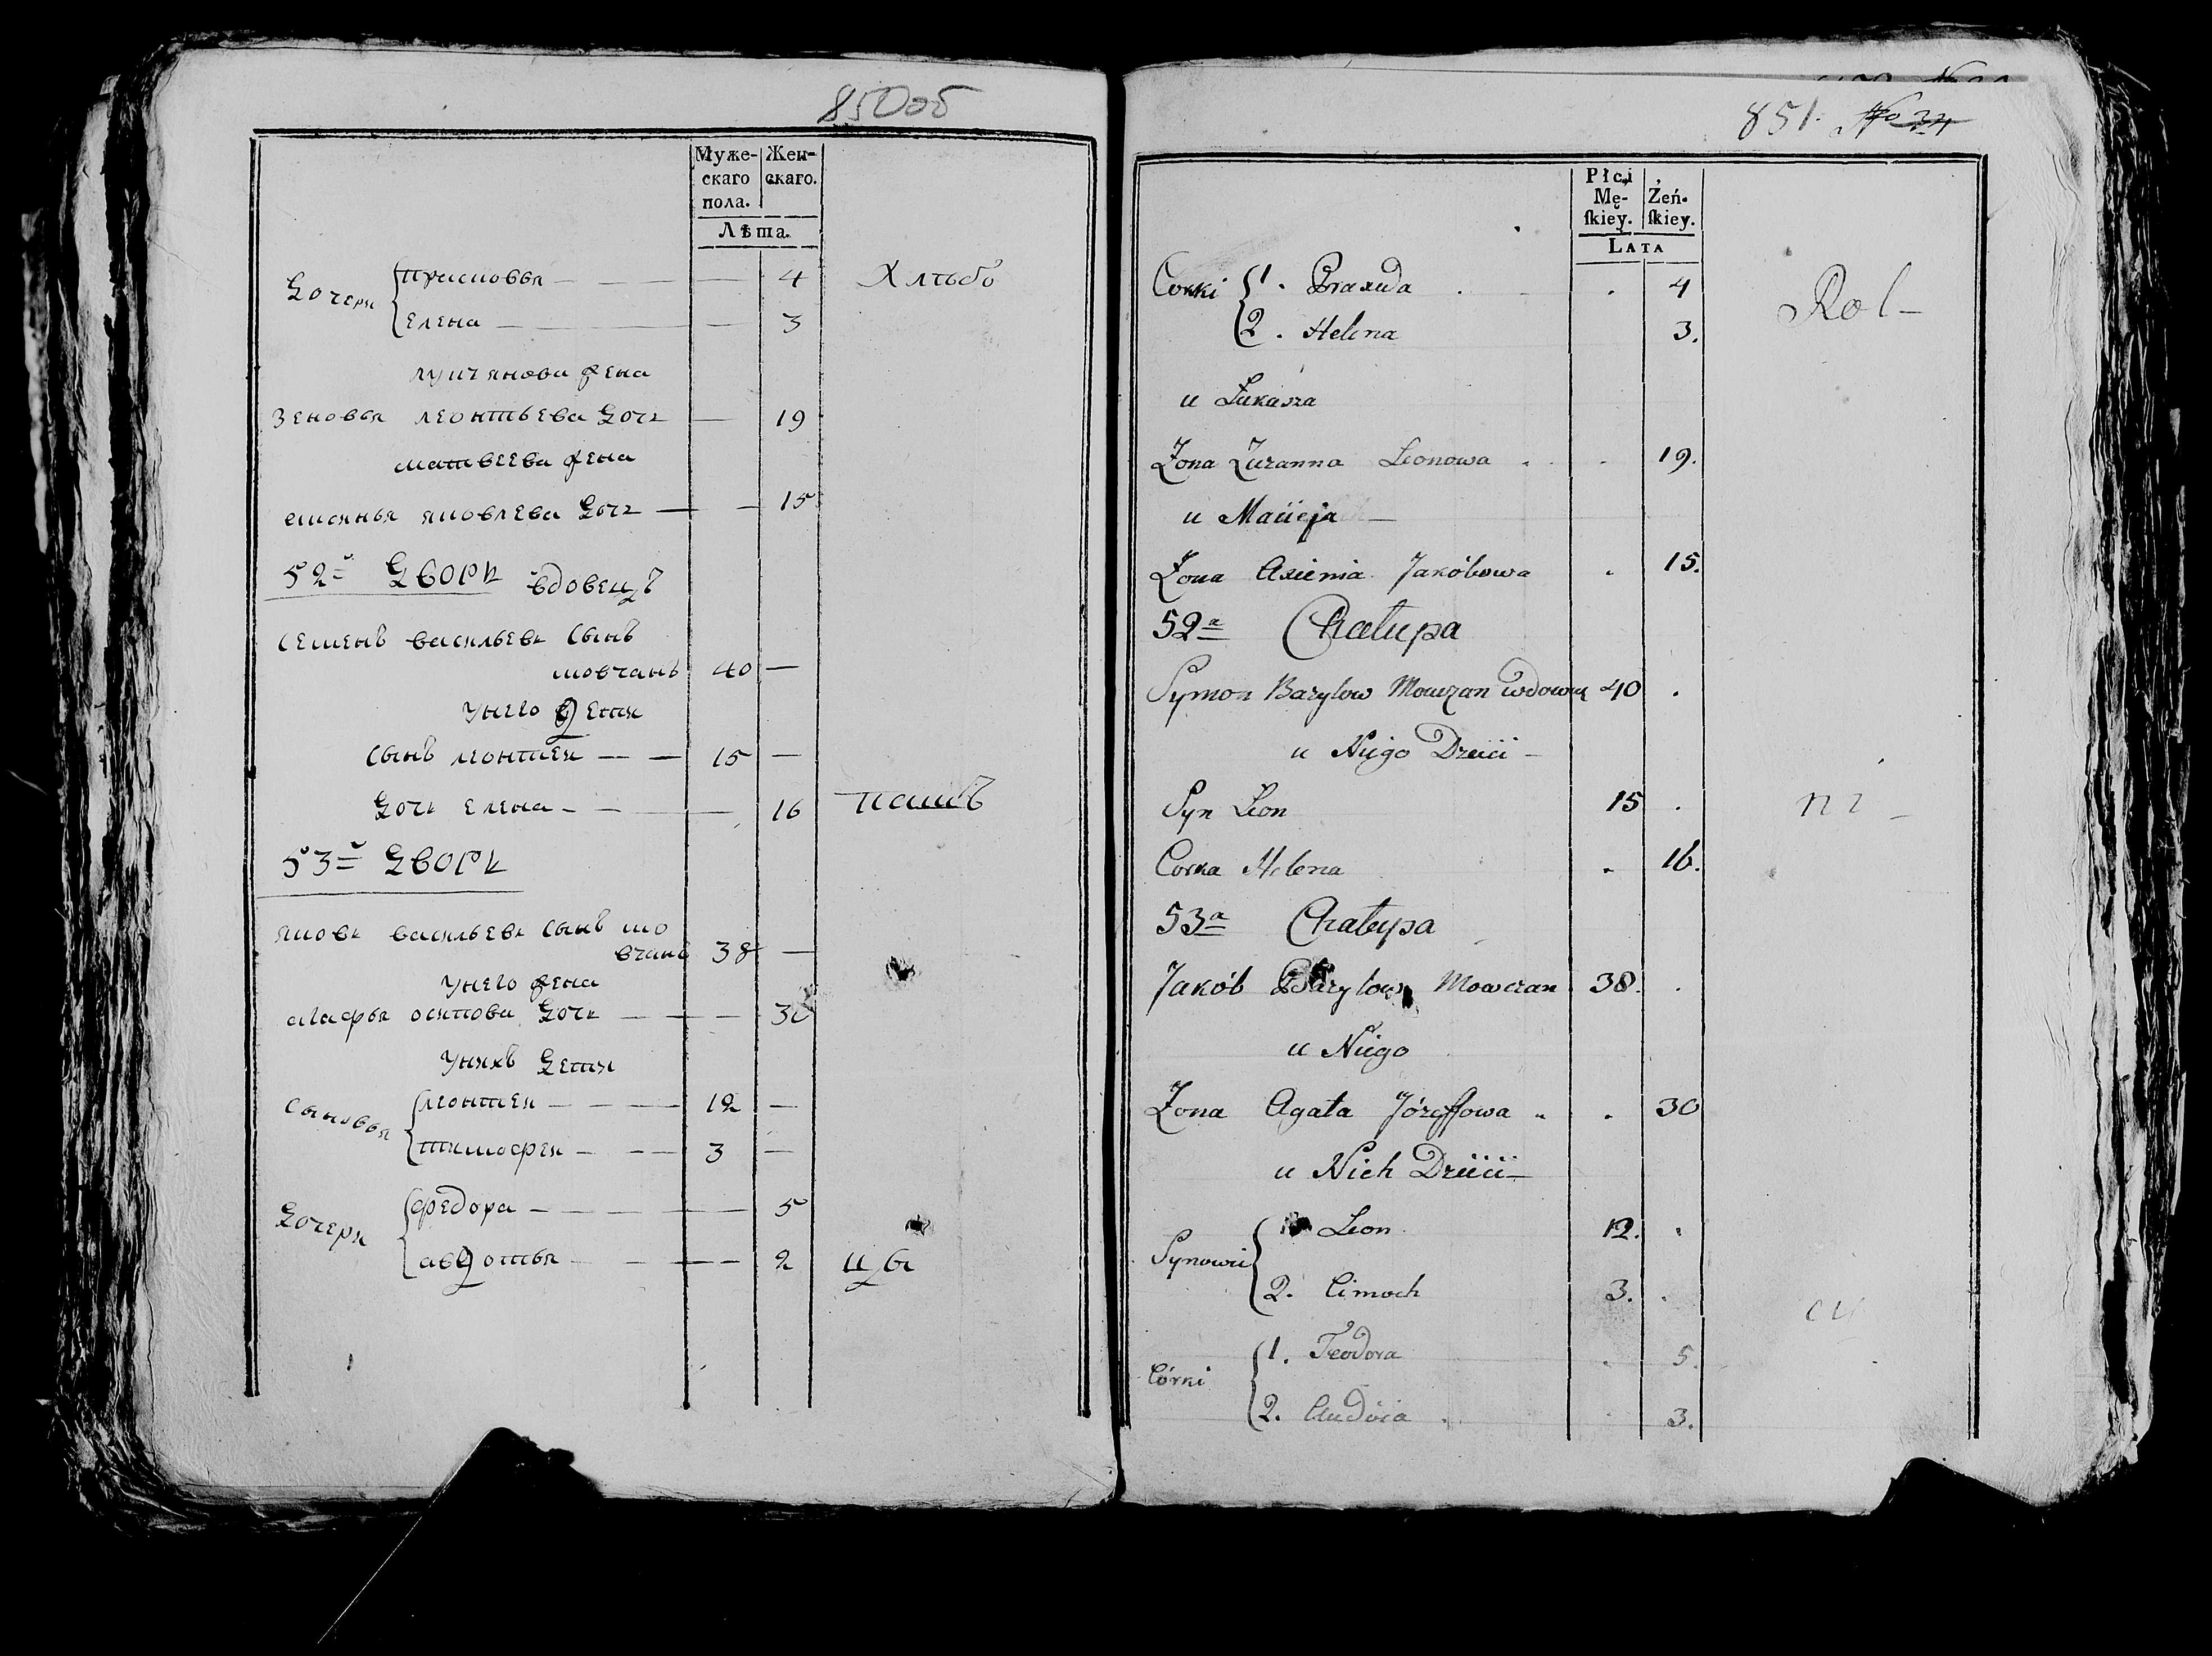 850об
Муже-
скаго
пола.
Жен-
скаго.
Лѣта.
Дочери
Присковья — — — 4 Хлѣбо
Елена — — 3
Лукʼянова жена
Зеновья Леонтьева дочь — 19
Матвеева жена
Яковлева дочь — — 15
52й Дворъ вдовецъ
Семенъ Васильевъ сынъ
Мовчанъ 40 —
У него дети
Сынъ Леонтеи — — 15 —
Дочь Елена — — — 16 паш
53й Дворъ
Яковъ Васильевъ сынъ Мо
вчанъ 38 —
У него жена
Агафья Осипова дочь — — — 30
У нихъ дети
Сыновья
Леонтеи — — — 12 —
Тимофеи — — — 3 —
Дочери
Федора — — — — 5
Авдотья — — — 2 цы
851. No 34
Płci
Mę-
ſkiey.
Żeń-
ſkiey.
LATA
Corki
1. Praxeda . . . 4 Rol-
2. Helena 3.
u Łukasza
Zona Zuzanna Leonowa . . 19.
u Macieja
Zona Axienia Jakóbowa . 15.
52a Chałupa
Symon Bazylow Mowczan wdowiec 40 .
u Niego Dzieci -
Syn Leon 15 . ni -
Corka Helena . 16.
53a Chałupa
Jakób Bazylow Mowczan 38. .
u Niego
Zona Agata Józeffowa . . 30
u Nich Dzieci -
Synowie
Leon 12. .
2. Cimoch 3. . cy
Córki
1. Teodora . 5.
2. Audocia . . 3.